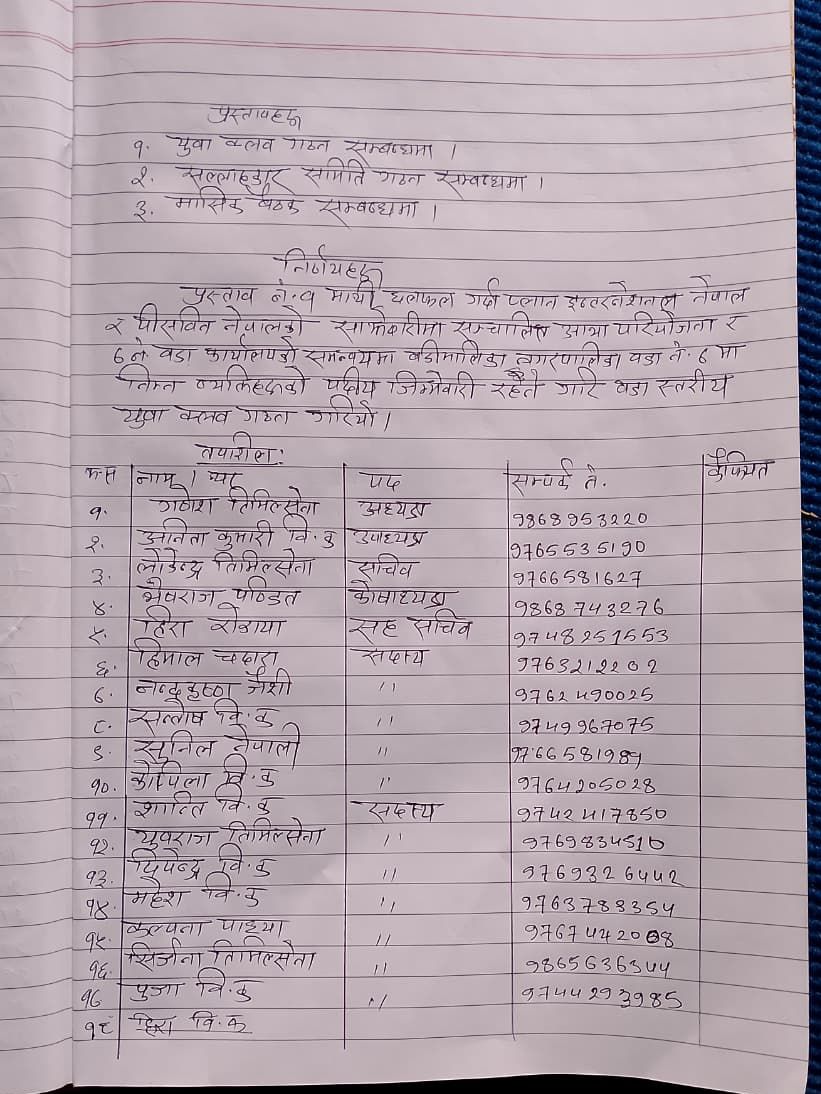 प्रस्तावहरू
१. युवा क्लव गठन सम्बन्धमा ।
२. सल्लाहकार समिति गठन सम्बन्धमा ।
३. मासिक बैठक सम्बन्धमा ।
निर्णयहरू
प्रस्ताव नं. १ माथी छलफल गर्दा प्लान इन्टरनेशनल नेपाल
र पीसविन नेपालको साझेदारीमा सञ्चालित आभा परियोजना र
७ नं. वडा कार्यालयको समन्वयमा बडीमालिका नगरपालिका वडा नं. ७ मा
निम्न व्यक्तिहरूको पदीय जिम्मेवारी रहने गरि वडा स्तरीय
युवा क्लव गठन गरियो ।
तपशील:
क.स नाम । थर पद सम्पर्क नं. कैफियत
१. गणेश तिमिल्सेना अध्यक्ष 9868953220
२. अनिता कुमारी वि.क उपाध्यक्ष 9765535190
३. लोकेन्द्र तिमिल्सेना सचिव 9766581627
४. भैषराज पण्डित कोषाध्यक्ष 9868743276
५. हिरा रोकाया सह सचिव 9748251553
६. हिमाल चदारा सदस्य 9763212202
७. नन्दकृष्ण जैशी '' 9762490025
८. सन्तोष वि.क '' 9749967075
९. सुनिल नेपाली '' 9766581989
१०. कोपिला वि.क '' 9764205028
११. शान्ति वि.क सदस्य 9742417850
१२. युवराज तिमिल्सेना '' 9769834510
१३. दिपेन्द्र वि.क '' 9769326442
१४. महेश वि.क '' 9763783354
१५. कल्पना पाध्या '' 9767442008
१६. सिर्जना तिमिल्सेना '' 9865636344
१७ पुजा वि.क '' 9744293985
१८ हिरा वि.क